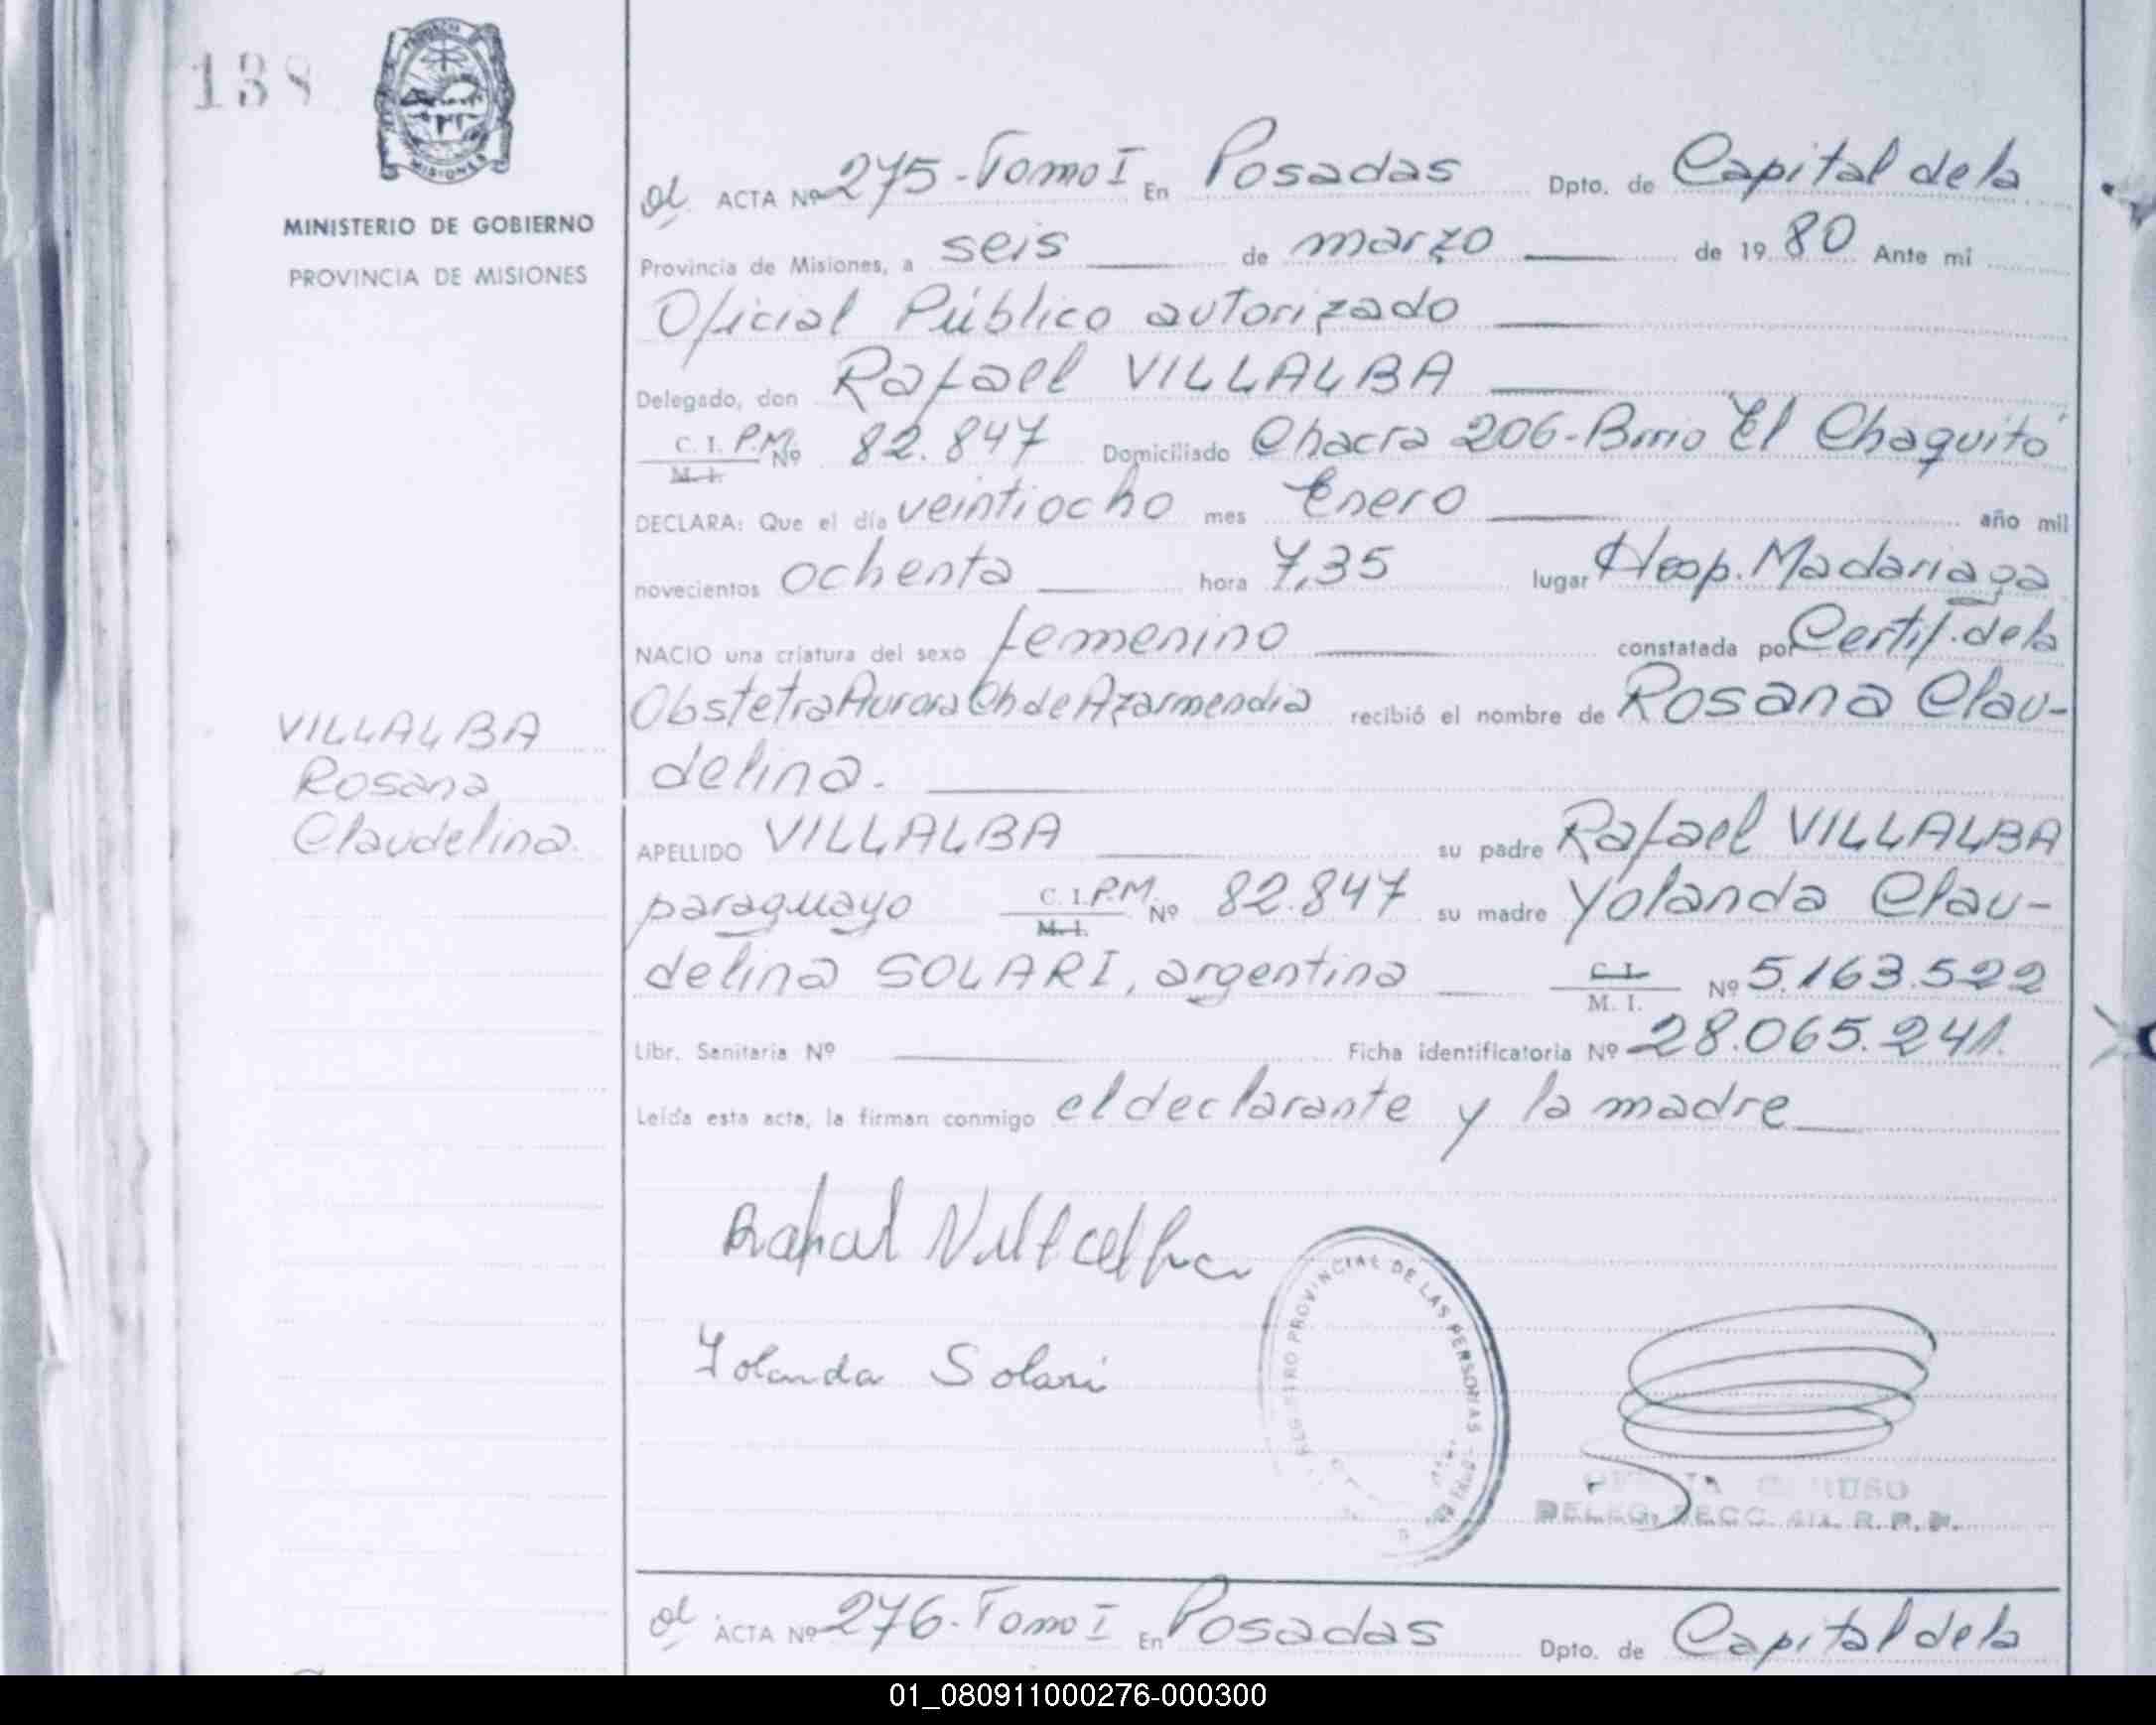 138
PROVINCIA
MISIONES
MINISTERIO DE GOBIERNO
PROVINCIA DE MISIONES
VILLALBA
Rosana
Claudelina.
ACTA Nº 275-Tomo I En Posadas Dpto. de Capital de la
Provincia de Misiones, a seis de marzo de 19 80 Ante mi
Oficial Público autorizado
Delegado, don Rafael VILLALBA
C. I. P.M. Nº 82.847 Domiciliado Chacra 206-Brrio "El Chaquito"
M. I.
DECLARA: Que el día veintiocho mes Enero año mil
novecientos ochenta hora 7,35 lugar Hosp. Madariaga
NACIO una criatura del sexo femenino constatada por Certif. de la
Obstetra Aurora Ch de Azarmendia recibió el nombre de Rosana Clau-
delina.
APELLIDO VILLALBA su padre Rafael VILLALBA
paraguayo C. I. P.M. Nº 82.847 su madre Yolanda Clau-
M. I.
delina SOLARI, argentina C. I. Nº 5.163.522
M. I.
Libr. Sanitaria Nº Ficha identificatoria Nº 28.065.241.
Leída esta acta, la firman conmigo el declarante y la madre
Rafael Villalba
Yolanda Solari
REGISTRO PROVINCIAL DE LAS PERSONAS
DELEG. SECC. R. P. P.
ACTA Nº 276-Tomo I En Posadas Dpto. de Capital de la
01_080911000276-000300